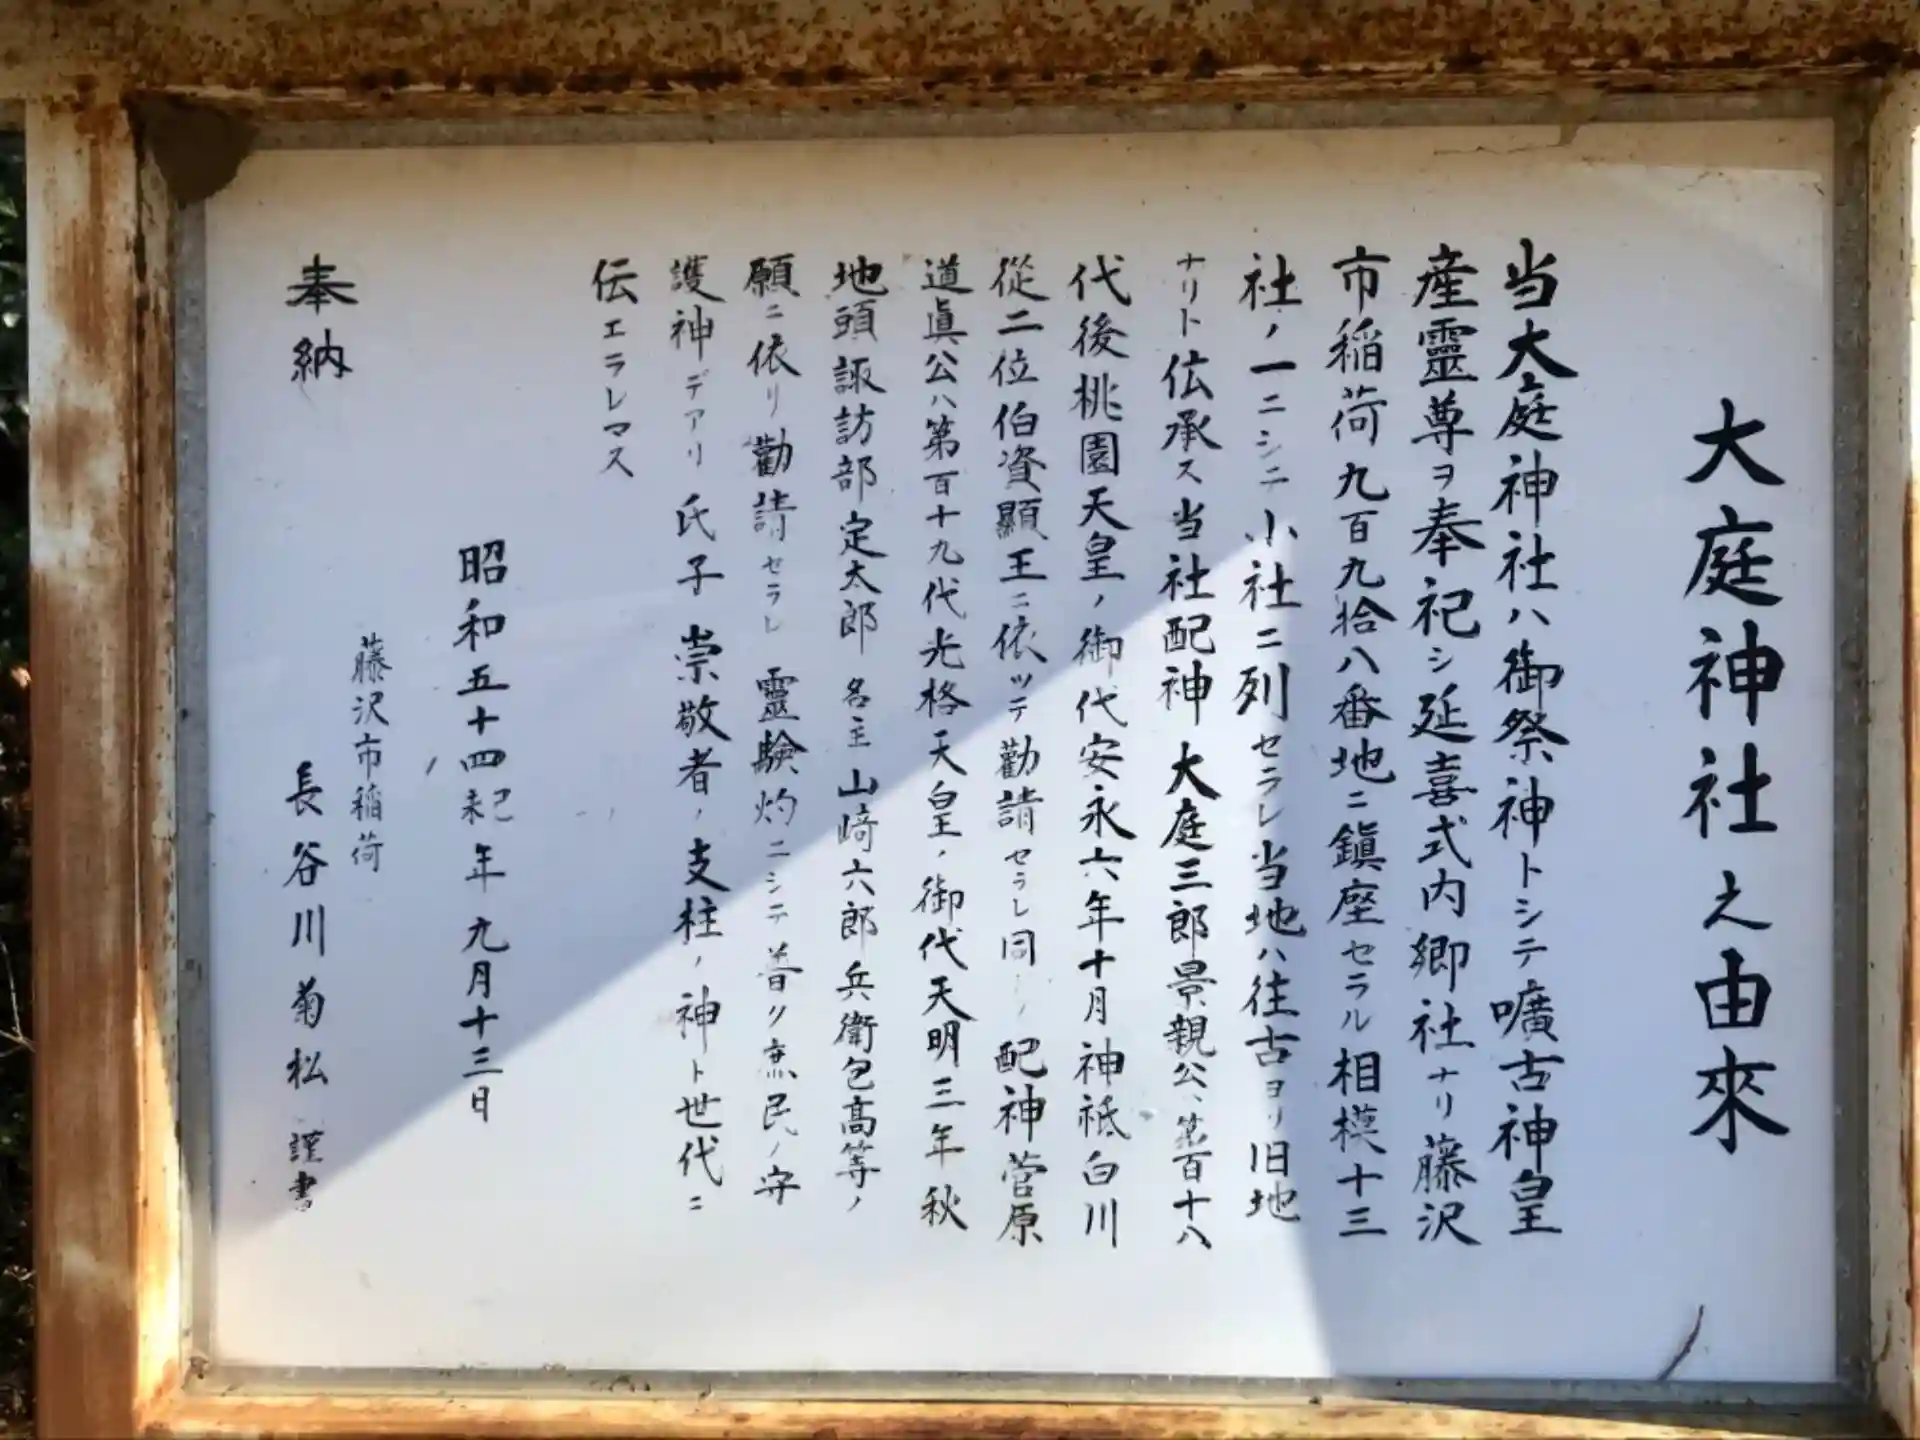 大庭神社之由來
当大庭神社ハ御祭神トシテ嚝古神皇
産靈尊ヲ奉祀シ延喜式内郷社ナリ藤沢
市稲荷九百九拾八番地ニ鎭座セラル相模十三
社ノ一ニシテ小社ニ列セラレ当地ハ往古ヨリ旧地
ナリト伝承ス当社配神大庭三郎景親公ハ第百十八
代後桃園天皇ノ御代安永六年十月神祇白川
從二位伯資顯王ニ依ツテ勸請セラレ同ジク配神菅原
道眞公ハ第百十九代光格天皇ノ御代天明三年秋
地頭諏訪部定太郎名主山﨑六郎兵衛包高等ノ
願ニ依リ勸請セラレ靈験灼ニシテ普ク庶民ノ守
護神デアリ氏子崇敬者ノ支柱ノ神ト世代ニ
伝エラレマス
昭和五十四年九月十三日
藤沢市稲荷
奉納 長谷川菊松謹書